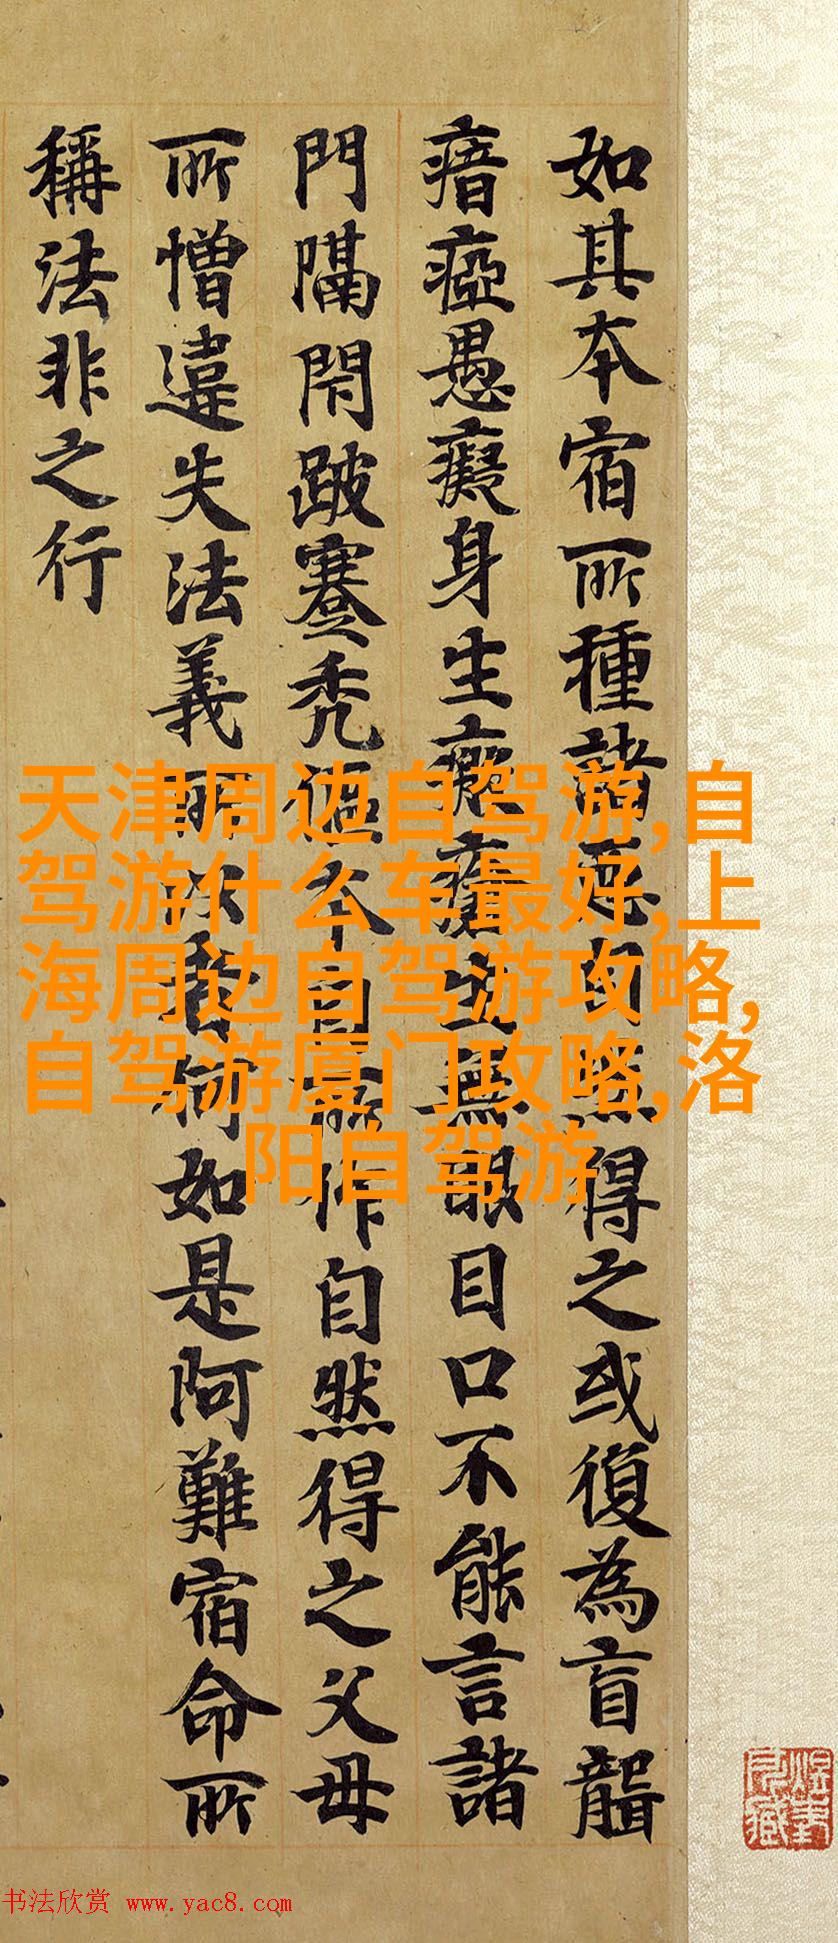 如其本宿所種諸惡自然得之或復為盲聾
瘖瘂愚癡身生癰瘡生無眼目口不能言諸
門隔閇跛蹇禿傴本自所作自然得之父母
所憎違失法義所以者何如是阿難宿命所
稱法非之行
天津周边自驾游,自
驾游什么车最好,上
海周边自驾游攻略,
自驾游厦门攻略,洛
阳自驾游
书法欣赏 www.yac8.com